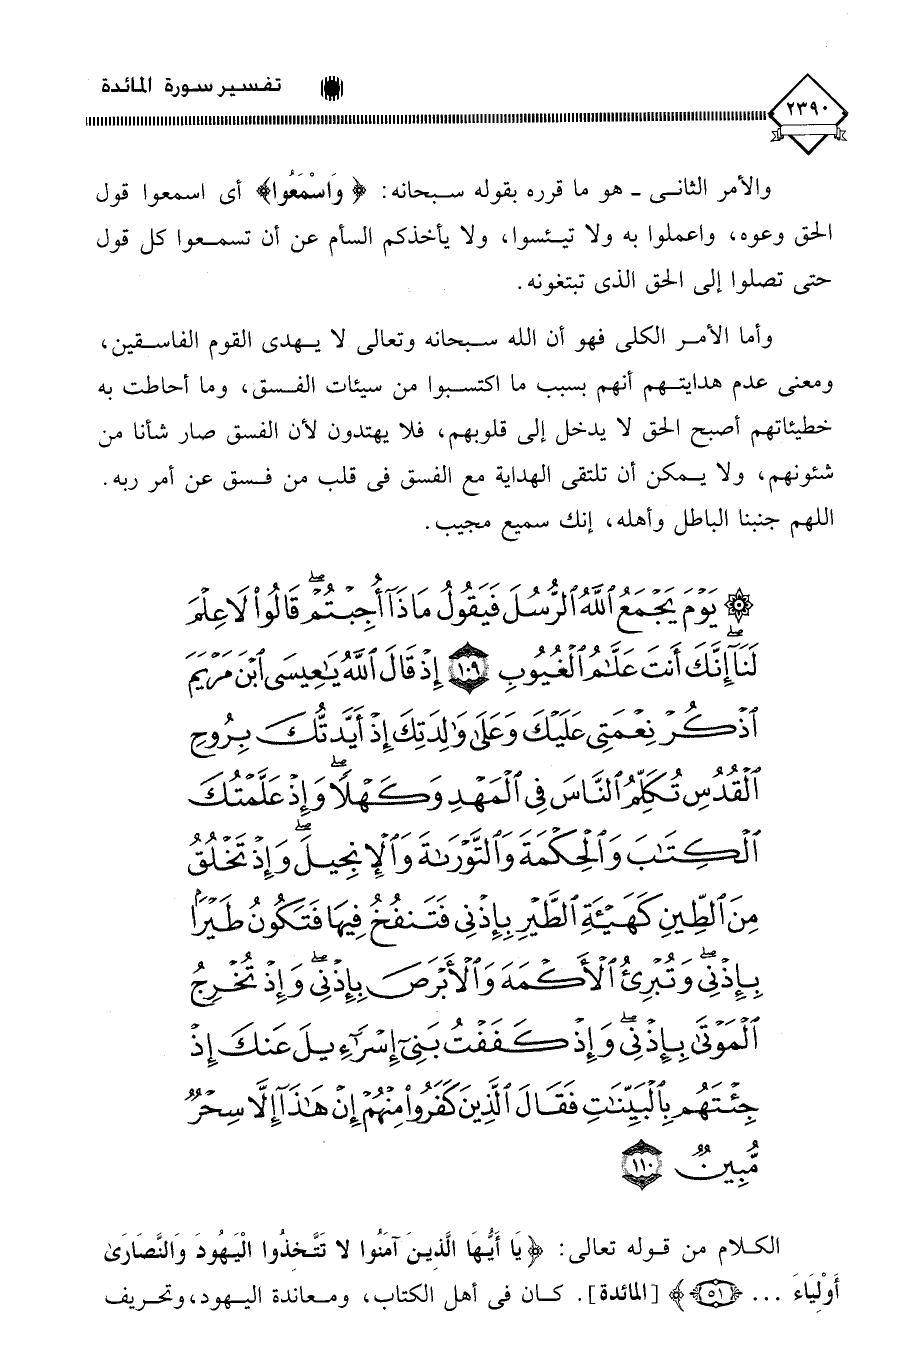 تفسير سورة المائدة
٢٣٩٠
والأمر الثانى ـ هو ما قرره بقوله سبحانه: ﴿ وَاسْمَعُوا﴾ أى اسمعوا قول
الحق وعوه، واعملوا به ولا تيئسوا، ولا يأخذكم السأم عن أن تسمعوا كل قول
حتى تصلوا إلى الحق الذى تبتغونه.
وأما الأمر الكلى فهو أن الله سبحانه وتعالى لا يهدى القوم الفاسقين،
ومعنى عدم هدايتهم أنهم بسبب ما اكتسبوا من سيئات الفسق، وما أحاطت به
خطيئاتهم أصبح الحق لا يدخل إلى قلوبهم، فلا يهتدون لأن الفسق صار شأنا من
شئونهم، ولا يمكن أن تلتقى الهداية مع الفسق فى قلب من فسق عن أمر ربه.
اللهم جنبنا الباطل وأهله، إنك سميع مجيب.
۞ يَوْمَ يَجْمَعُ ٱللَّهُ ٱلرُّسُلَ فَيَقُولُ مَاذَآ أُجِبْتُمْ ۖ قَالُوا۟ لَا عِلْمَ
لَنَآ ۖ إِنَّكَ أَنتَ عَلَّٰمُ ٱلْغُيُوبِ ١٠٩ إِذْ قَالَ ٱللَّهُ يَٰعِيسَى ٱبْنَ مَرْيَمَ
ٱذْكُرْ نِعْمَتِى عَلَيْكَ وَعَلَىٰ وَٰلِدَتِكَ إِذْ أَيَّدتُّكَ بِرُوحِ
ٱلْقُدُسِ تُكَلِّمُ ٱلنَّاسَ فِى ٱلْمَهْدِ وَكَهْلًا ۖ وَإِذْ عَلَّمْتُكَ
ٱلْكِتَٰبَ وَٱلْحِكْمَةَ وَٱلتَّوْرَىٰةَ وَٱلْإِنجِيلَ ۖ وَإِذْ تَخْلُقُ
مِنَ ٱلطِّينِ كَهَيْـَٔةِ ٱلطَّيْرِ بِإِذْنِى فَتَنفُخُ فِيهَا فَتَكُونُ طَيْرًۢا
بِإِذْنِى ۖ وَتُبْرِئُ ٱلْأَكْمَهَ وَٱلْأَبْرَصَ بِإِذْنِى ۖ وَإِذْ تُخْرِجُ
ٱلْمَوْتَىٰ بِإِذْنِى ۖ وَإِذْ كَفَفْتُ بَنِىٓ إِسْرَٰٓءِيلَ عَنكَ إِذْ
جِئْتَهُم بِٱلْبَيِّنَٰتِ فَقَالَ ٱلَّذِينَ كَفَرُوا۟ مِنْهُمْ إِنْ هَٰذَآ إِلَّا سِحْرٌ
مُّبِينٌ ١١٠
الكلام من قوله تعالى: ﴿ يَا أَيُّهَا الَّذِينَ آمَنُوا لا تَتَّخِذُوا الْيَهُودَ وَالنَّصَارَىٰ
أَوْلِيَاءَ ... ﴿٥١﴾ ﴾ [المائدة]. كان فى أهل الكتاب، ومعاندة اليهود، وتحريف